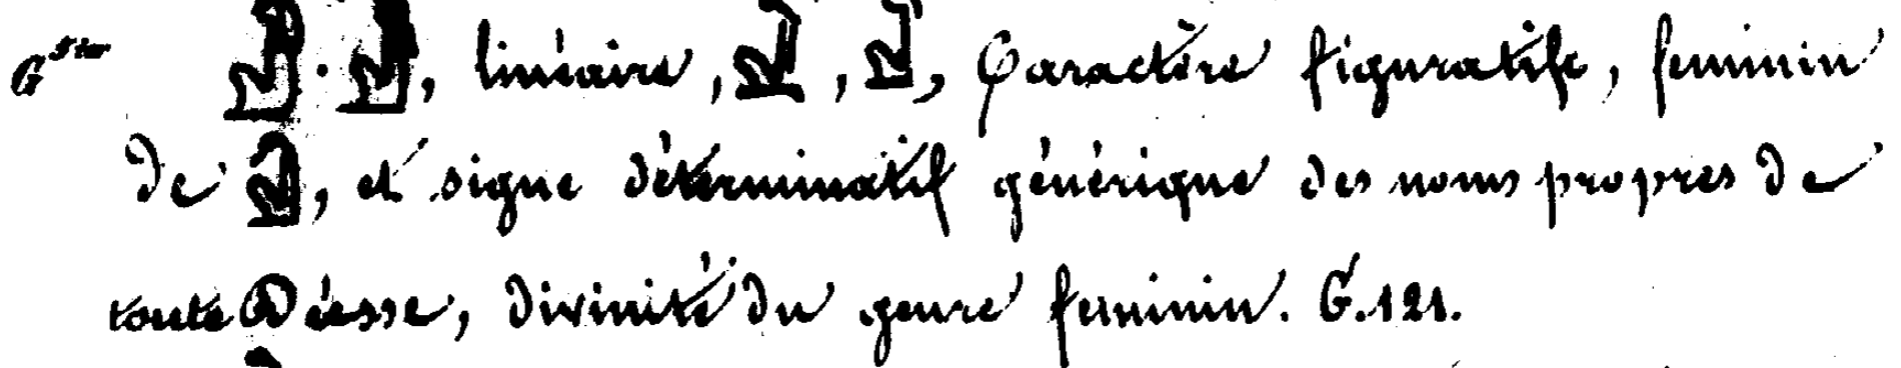 Gter . , linéaire, , , Caractère figuratife, feminin
de , et signe déterminatif générique des noms propres de
toute Déesse, divinité du genre feminin. G. 121.